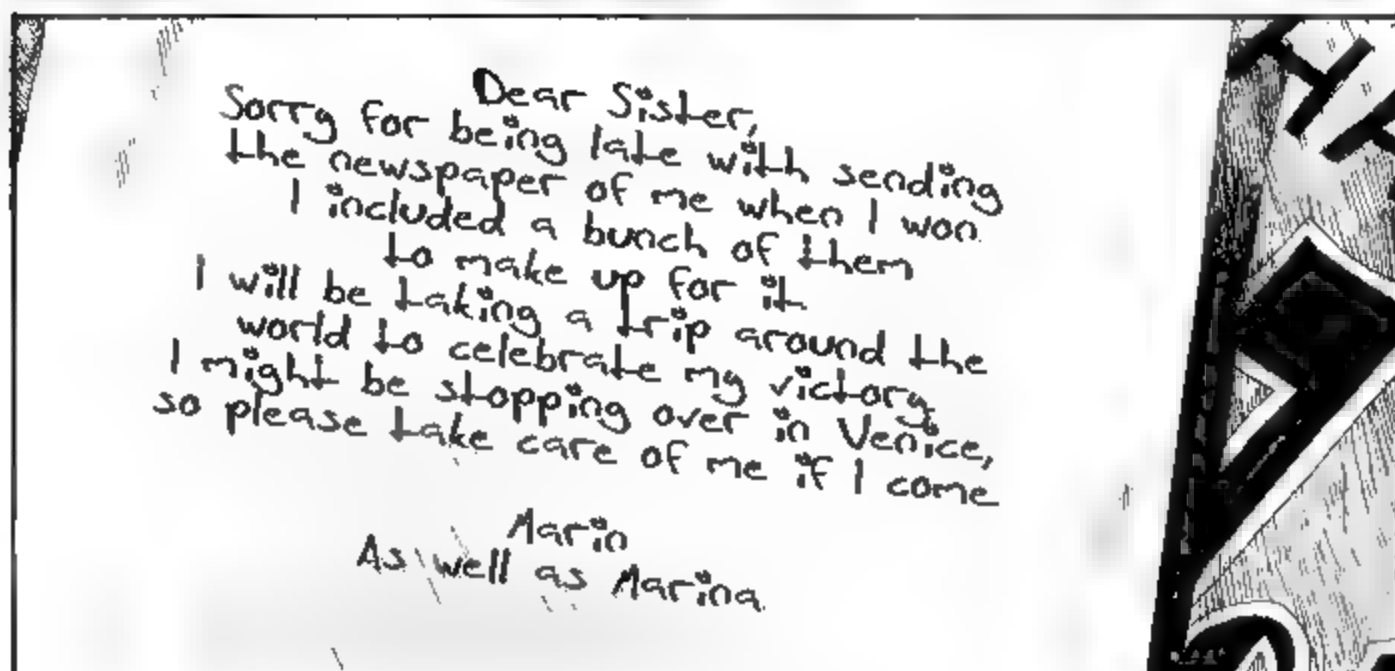 Dear Sister,
Sorry for being late with sending
the newspaper of me when I won.
I included a bunch of them
to make up for it
I will be taking a trip around the
world to celebrate my victory.
I might be stopping over in Venice,
so please take care of me if I come
Marin
As well as Marina